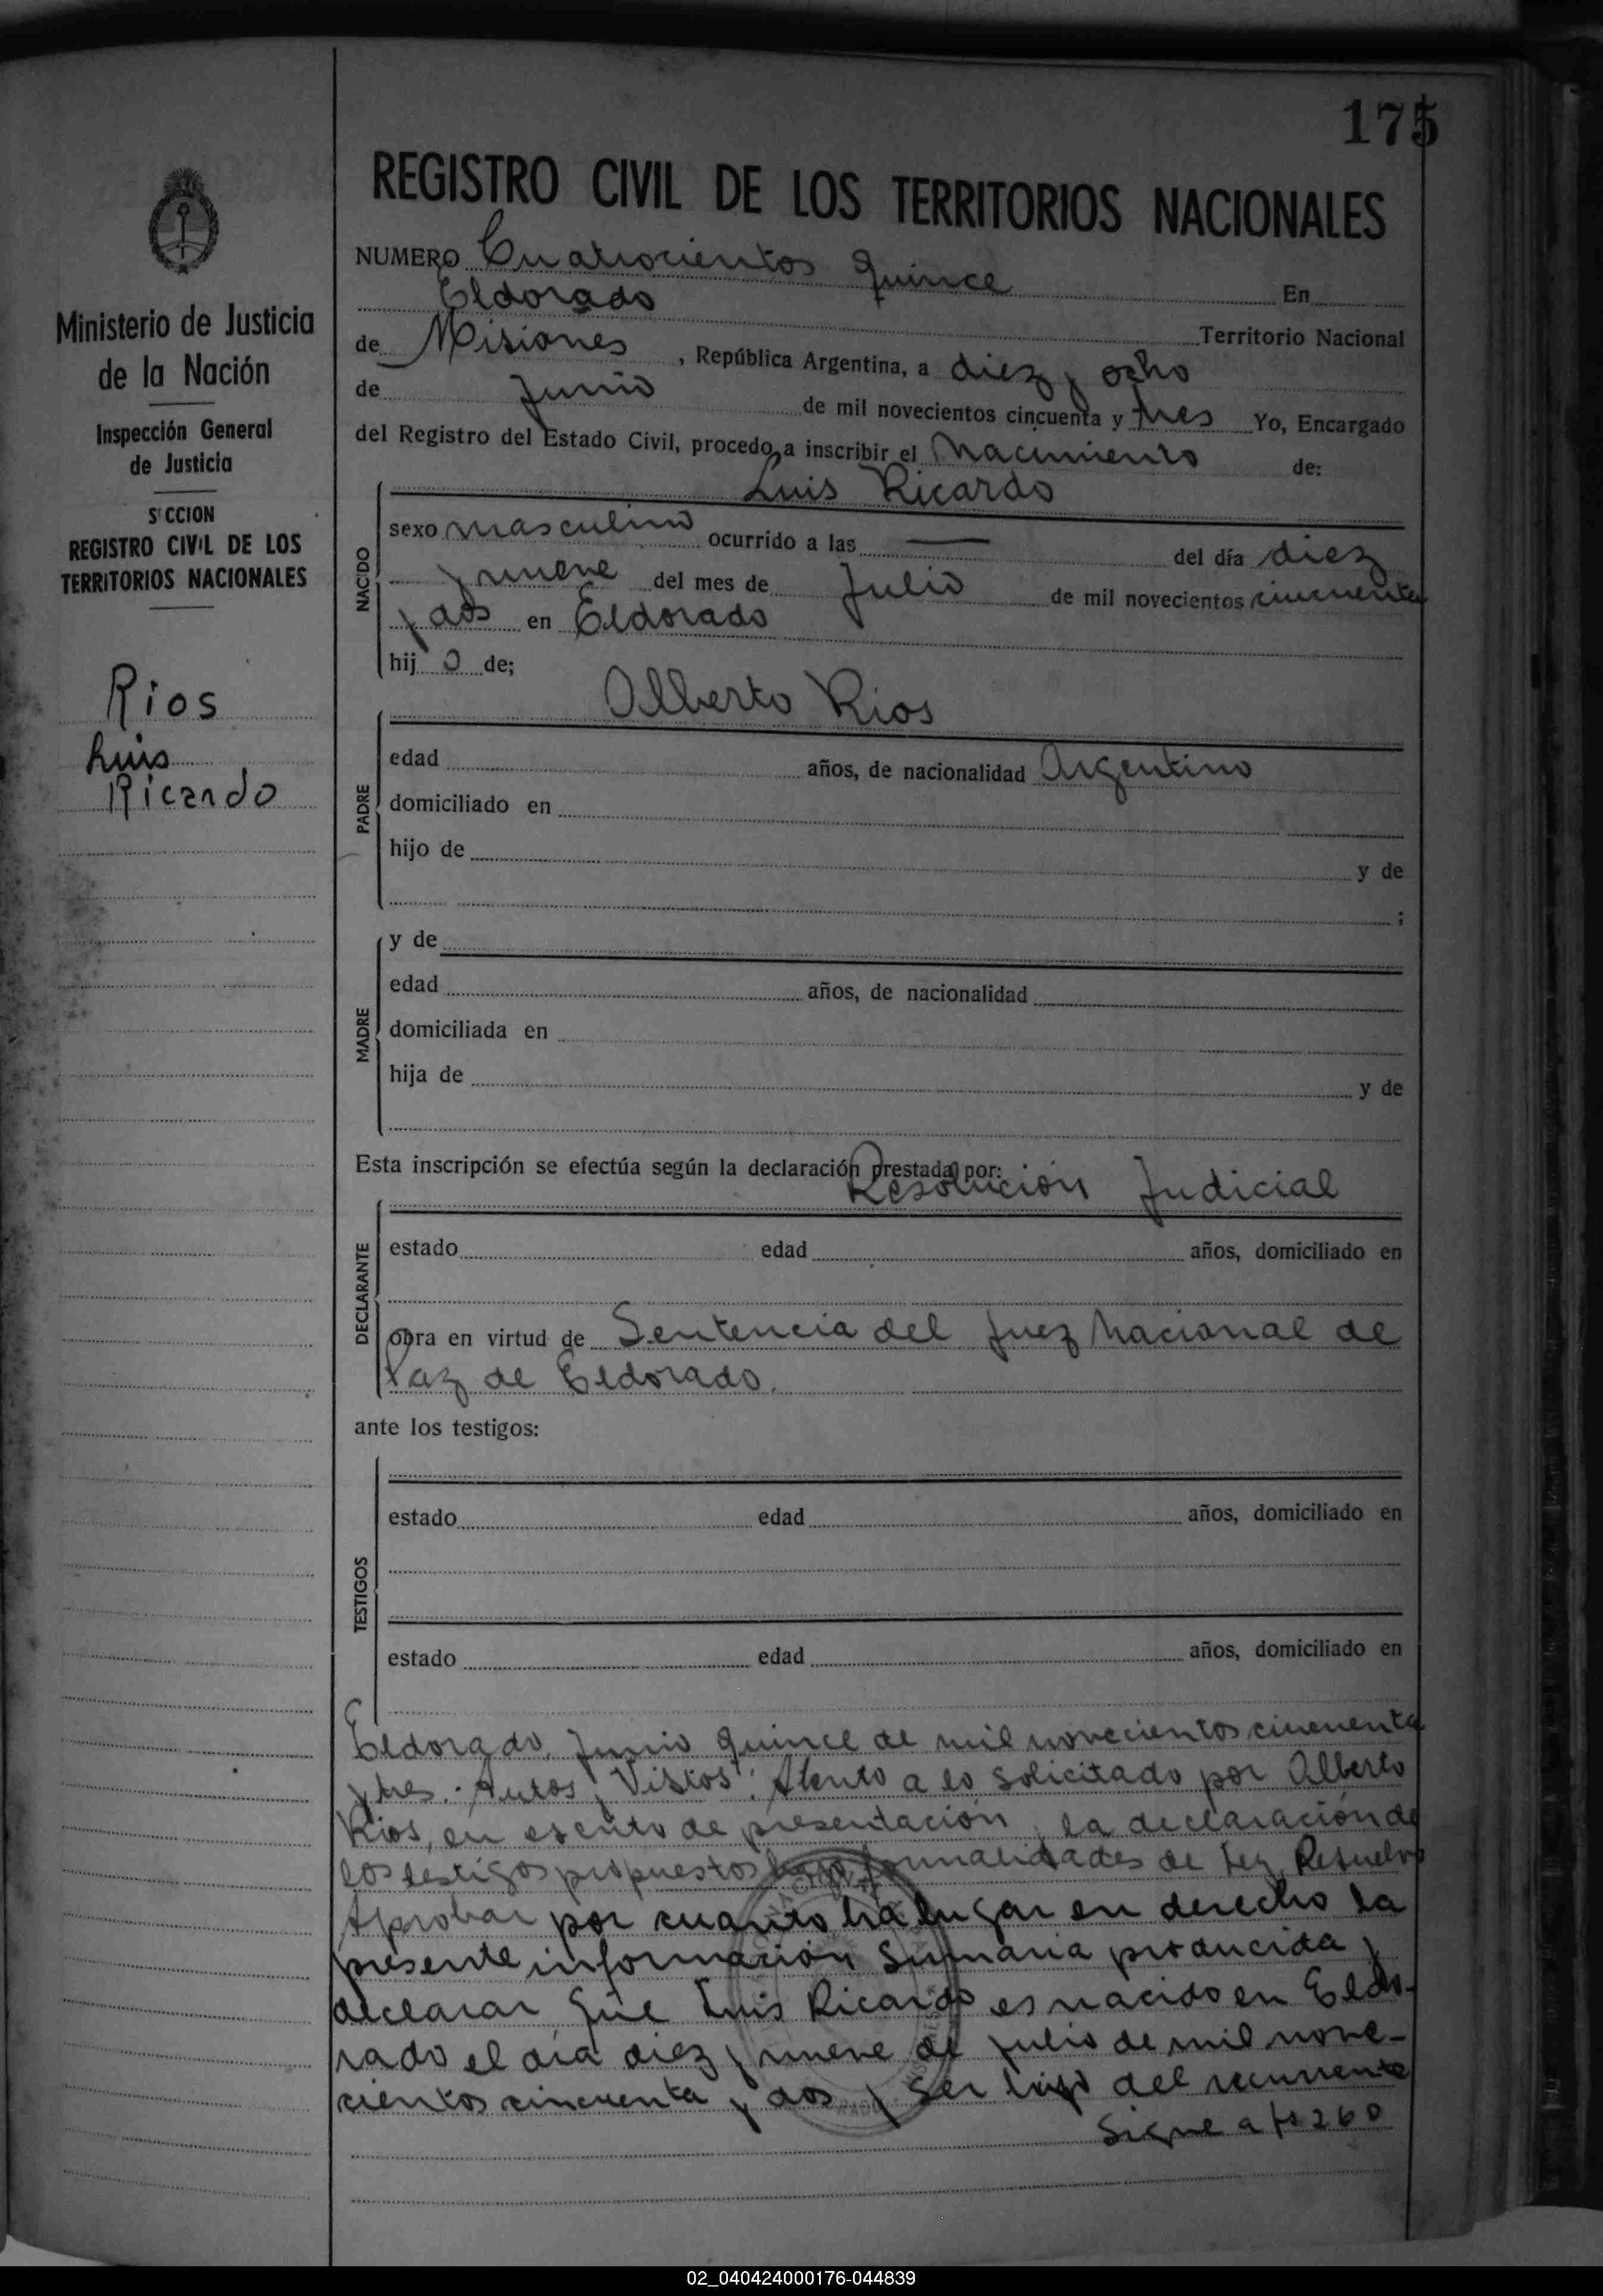 175
REGISTRO CIVIL DE LOS TERRITORIOS NACIONALES
NUMERO Cuatrocientos quince En
Eldorado Territorio Nacional
de Misiones, República Argentina, a diez y ocho
de Junio de mil novecientos cincuenta y tres Yo, Encargado
del Registro del Estado Civil, procedo a inscribir el Nacimiento de:
Ministerio de Justicia
de la Nación
Inspección General
de Justicia
S CCION
REGISTRO CIVIL DE LOS
TERRITORIOS NACIONALES
Rios
Luis
Ricardo
NACIDO
Luis Ricardo
sexo masculino ocurrido a las — del día diez
y nueve del mes de Julio de mil novecientos cincuenta
y dos en Eldorado
hij o de;
PADRE
Alberto Rios
edad años, de nacionalidad Argentino
domiciliado en
hijo de y de
;
MADRE
y de
edad años, de nacionalidad
domiciliada en
hija de y de
Esta inscripción se efectúa según la declaración prestada por:
DECLARANTE
Resolución Judicial
estado edad años, domiciliado en
obra en virtud de Sentencia del Juez Nacional de
Paz de Eldorado.
ante los testigos:
TESTIGOS
estado edad años, domiciliado en
estado edad años, domiciliado en
Eldorado, Junio quince de mil novecientos cincuenta
y tres. Autos y Vistos: Atento a lo solicitado por Alberto
Rios, en escrito de presentación, la declaración de
los testigos propuestos bajo formalidades de Ley, Resuelvo
Aprobar por cuanto ha lugar en derecho la
presente información Sumaria producida y
declarar que Luis Ricardo es nacido en Eldo-
rado el día diez y nueve de julio de mil nove-
cientos cincuenta y dos y ser hijo del recurrente
Sigue a fs 260
02_040424000176-044839